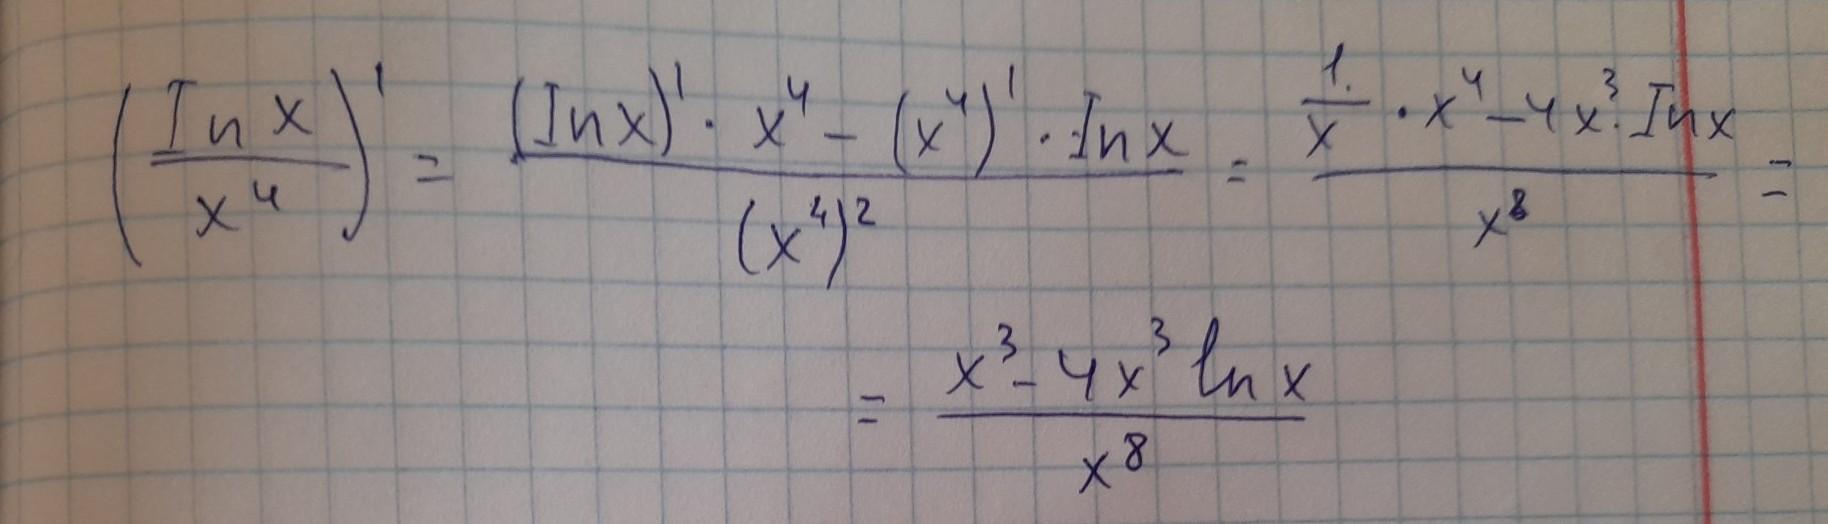 (In x / x⁴)' = ((In x)' · x⁴ - (x⁴)' · In x) / (x⁴)² = (1/x · x⁴ - 4x³ · In x) / x⁸ =
= (x³ - 4x³ ln x) / x⁸